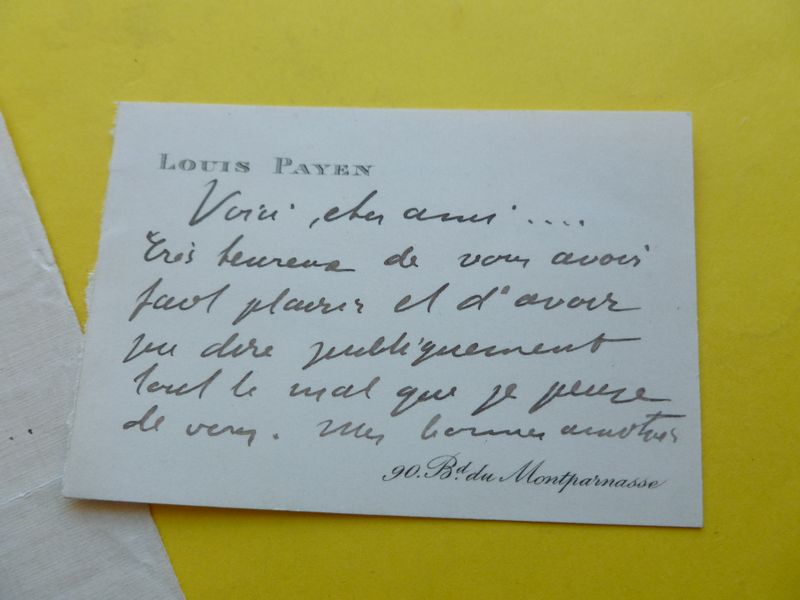 LOUIS PAYEN
Voici, cher ami....
Très heureux de vous avoir
fait plaisir et d'avoir
pu dire publiquement
tout le mal que je pense
de vous. Mes bonnes amitiés
90. Bd. du Montparnasse